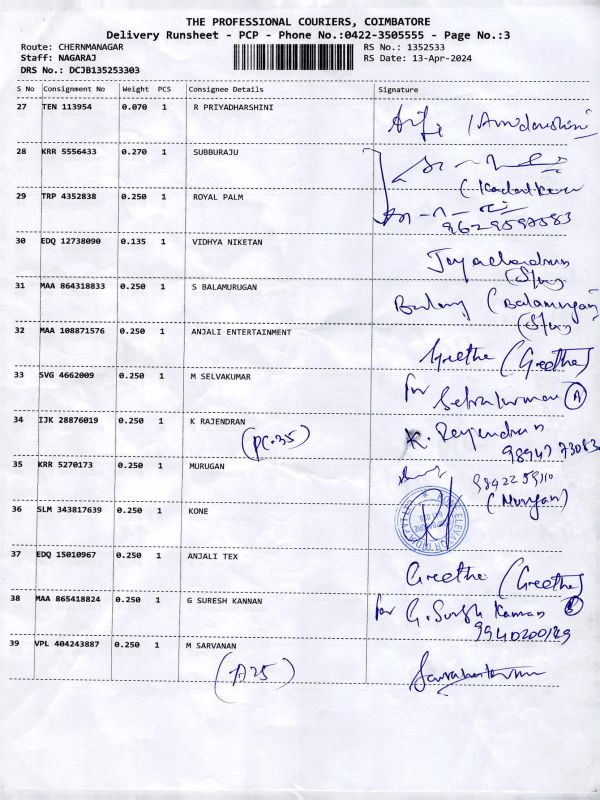 THE PROFESSIONAL COURIERS, COIMBATORE
Delivery Runsheet - PCP - Phone No.:0422-3505555 - Page No.:3
Route: CHERNMANAGAR RS No.: 1352533
Staff: NAGARAJ RS Date: 13-Apr-2024
DRS No.: DCJB135253303
S No Consignment No Weight PCS Consignee Details Signature
27 TEN 113954 0.070 1 R PRIYADHARSHINI
28 KRR 5556433 0.270 1 SUBBURAJU
29 TRP 4352838 0.250 1 ROYAL PALM
9629597583
30 EDQ 12738090 0.135 1 VIDHYA NIKETAN
31 MAA 864318833 0.250 1 S BALAMURUGAN
(Balamurugan)
32 MAA 108871576 0.250 1 ANJALI ENTERTAINMENT
Greetha (Greetha)
33 SVG 4662009 0.250 1 M SELVAKUMAR
for Selvakumar A
34 IJK 28876019 0.250 1 K RAJENDRAN
(PC.35) K. Rajendran
35 KRR 5270173 0.250 1 MURUGAN
(Murugan)
36 SLM 343817639 0.250 1 KONE
37 EDQ 15010967 0.250 1 ANJALI TEX
Greetha (Greetha)
38 MAA 865418824 0.250 1 G SURESH KANNAN
for G. Suresh Kannan
39 VPL 404243887 0.250 1 M SARVANAN
(A25)